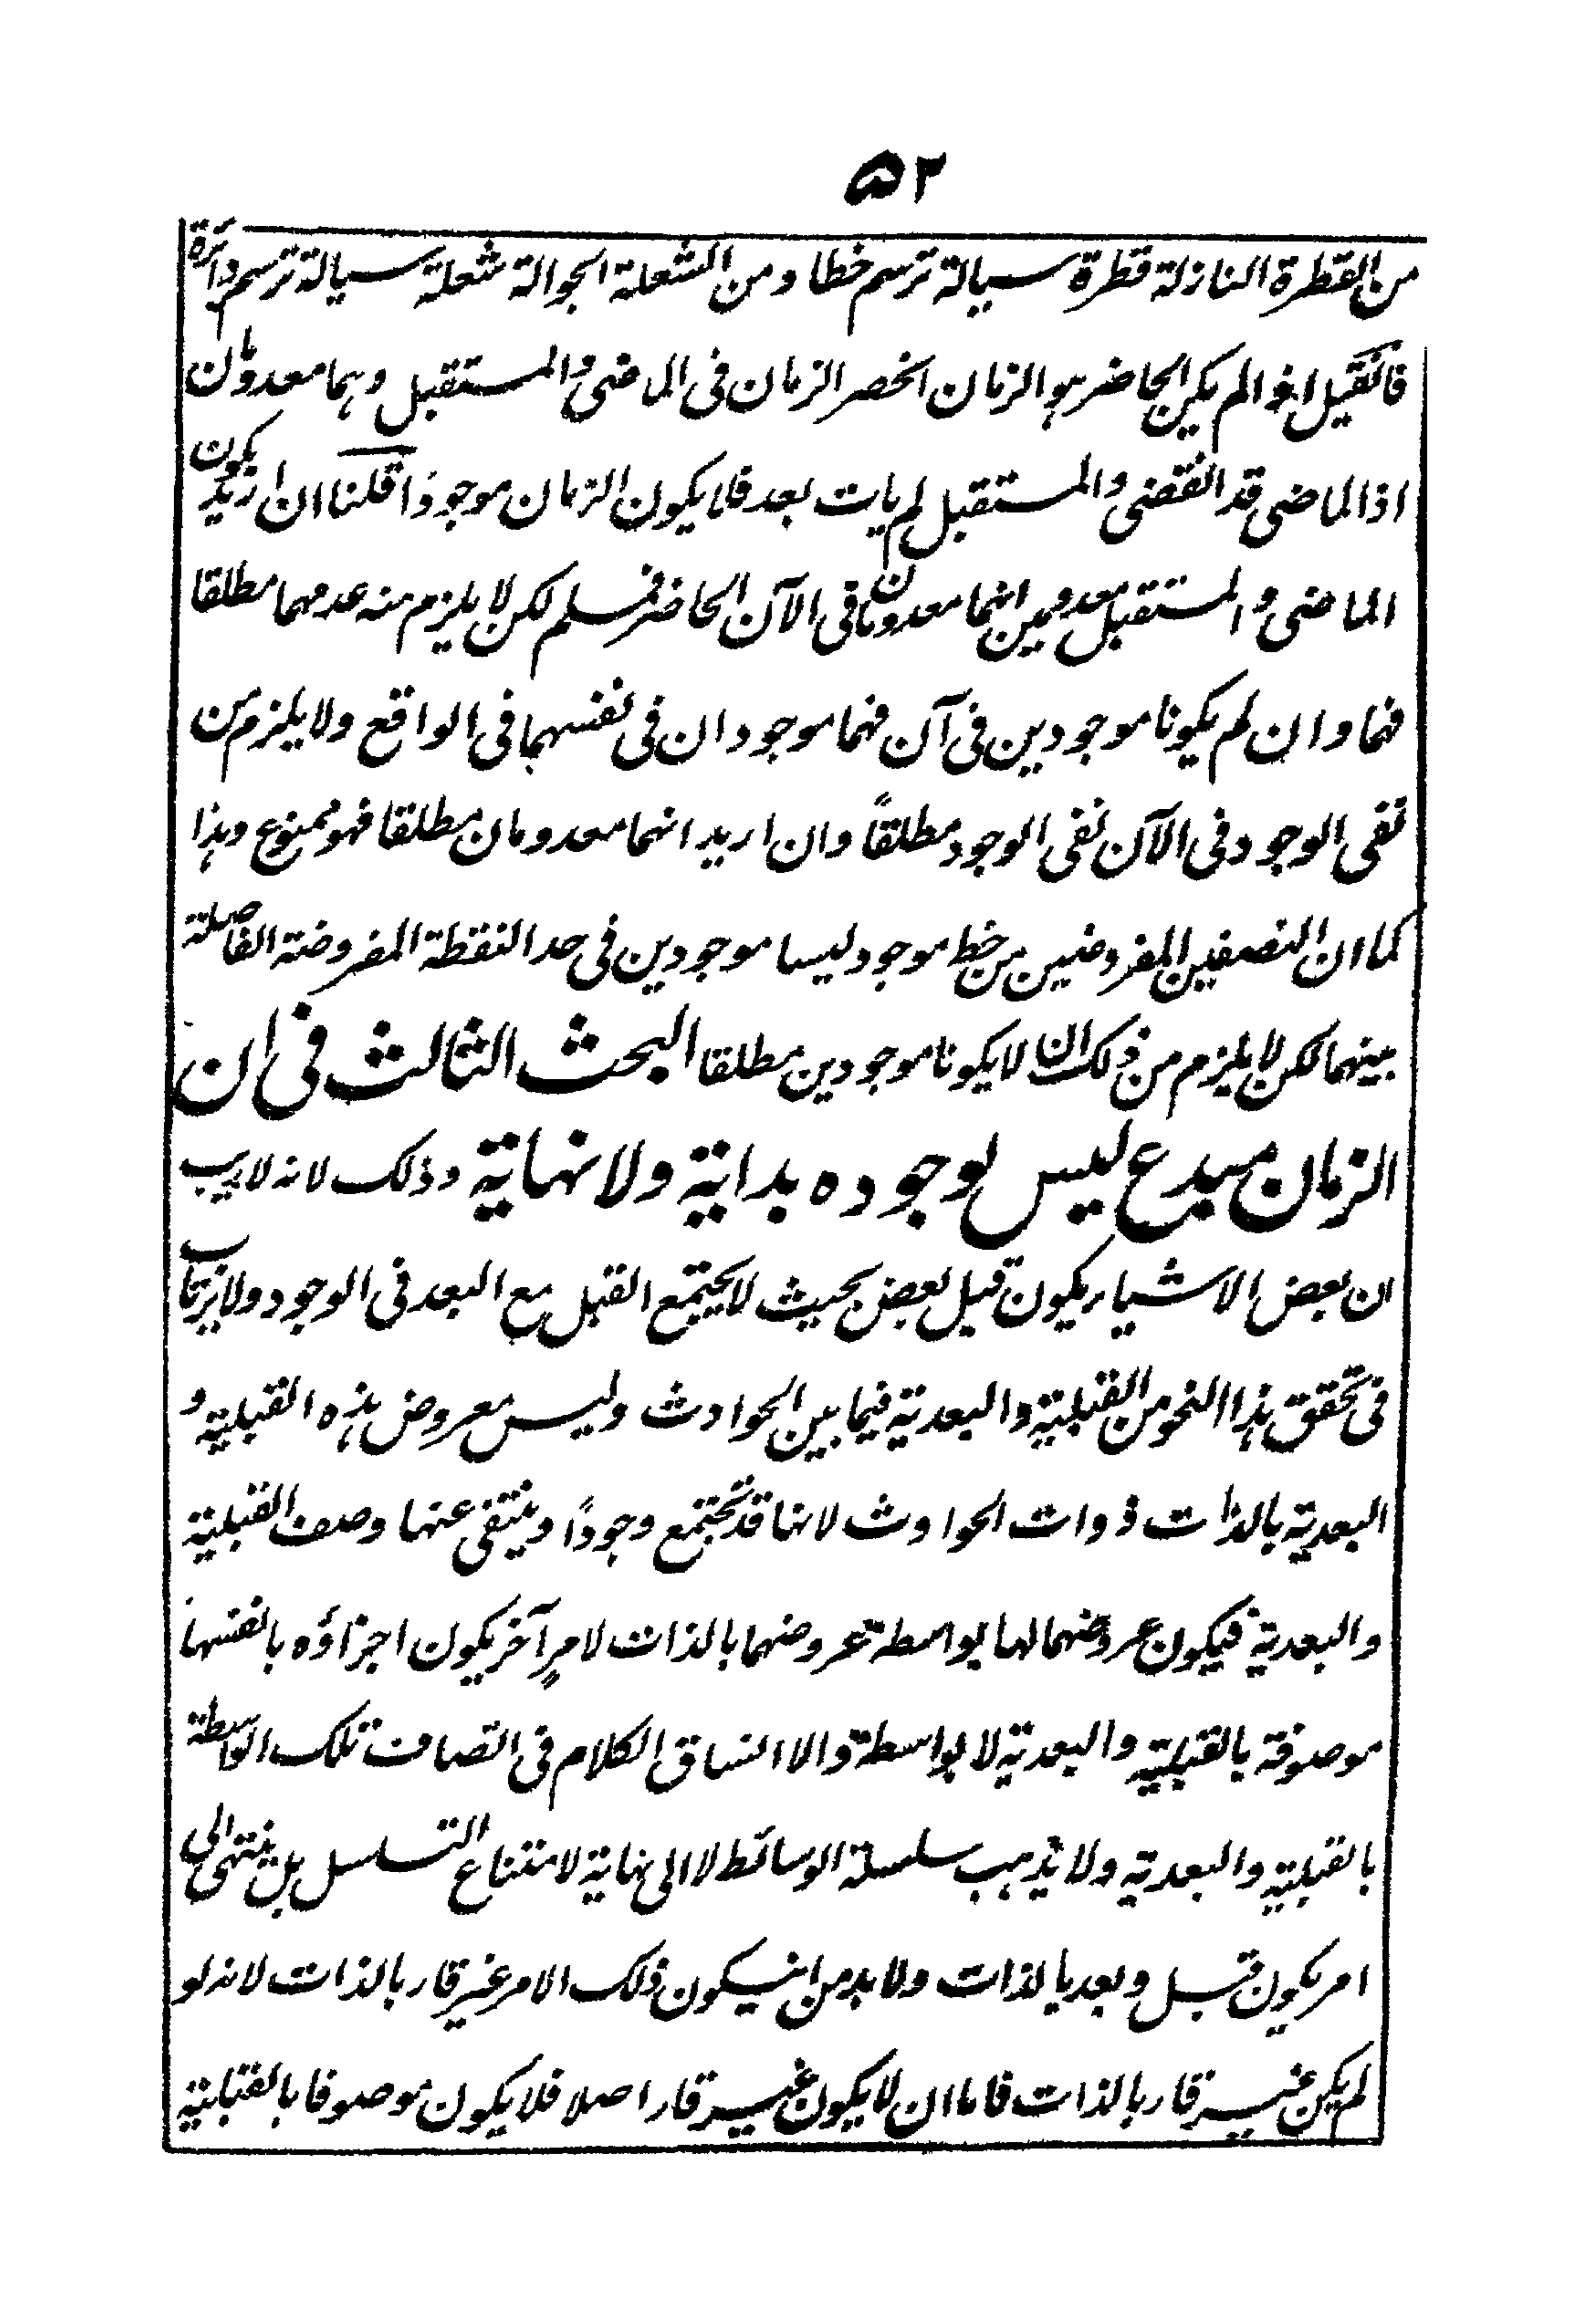 ۵۲
من القطرة النازلة قطرة سيالة ترسم خطا ومن الشعلة الجوالة شعلة سيالة ترسم دائرة
فان قيل اذا لم يكن الحاضر هو الزمان انحصر الزمان فى الماضى والمستقبل وهما معدومان
اذ الماضى قد انقضى والمستقبل لم يات بعد فلا يكون الزمان موجودا قلنا ان اريد بكون
الماضى والمستقبل معدومين انهما معدومان فى الآن الحاضر فمسلم لكن لا يلزم منه عدمهما مطلقا
فهما وان لم يكونا موجودين فى آن فهما موجودان فى نفسهما فى الواقع ولا يلزم من
نفى الوجود فى الآن نفى الوجود مطلقاً وان اريد انهما معدومان مطلقا فهو ممنوع وهذا
كما ان النصفين المفروضين من خط موجود ليسا موجودين فى حد النقطة المفروضة الفاصلة
بينهما لكن لا يلزم من ذلك ان لا يكونا موجودين مطلقا البحث الثالث فى ان
الزمان مبدع ليس لوجوده بداية ولا نهاية وذلك لانه لا ريب
ان بعض الاشياء يكون قبل بعض بحيث لا يجتمع القبل مع البعد فى الوجود ولا يرتاب
فى تحقق هذا النحو من القبلية والبعدية فيما بين الحوادث وليس معروض هذه القبلية و
البعدية بالذات ذوات الحوادث لانها قد تجتمع وجوداً وينتفى عنها وصف القبلية
والبعدية فيكون عروضهما لها بواسطة عروضهما بالذات لامرٍ آخر يكون اجزاؤه بانفسها
موصوفة بالقبلية والبعدية لا بواسطة والا انساق الكلام فى اتصاف تلك الواسطة
بالقبلية والبعدية ولا يذهب سلسلة الوسائط لا الى نهاية لامتناع التسلسل بل ينتهى الى
امر يكون قبل وبعد بالذات ولا بد من ان يكون ذلك الامر غير قار بالذات لانه لو
لم يكن غير قار بالذات فاما ان لا يكون غير قار اصلا فلا يكون موصوفا بالقبلية